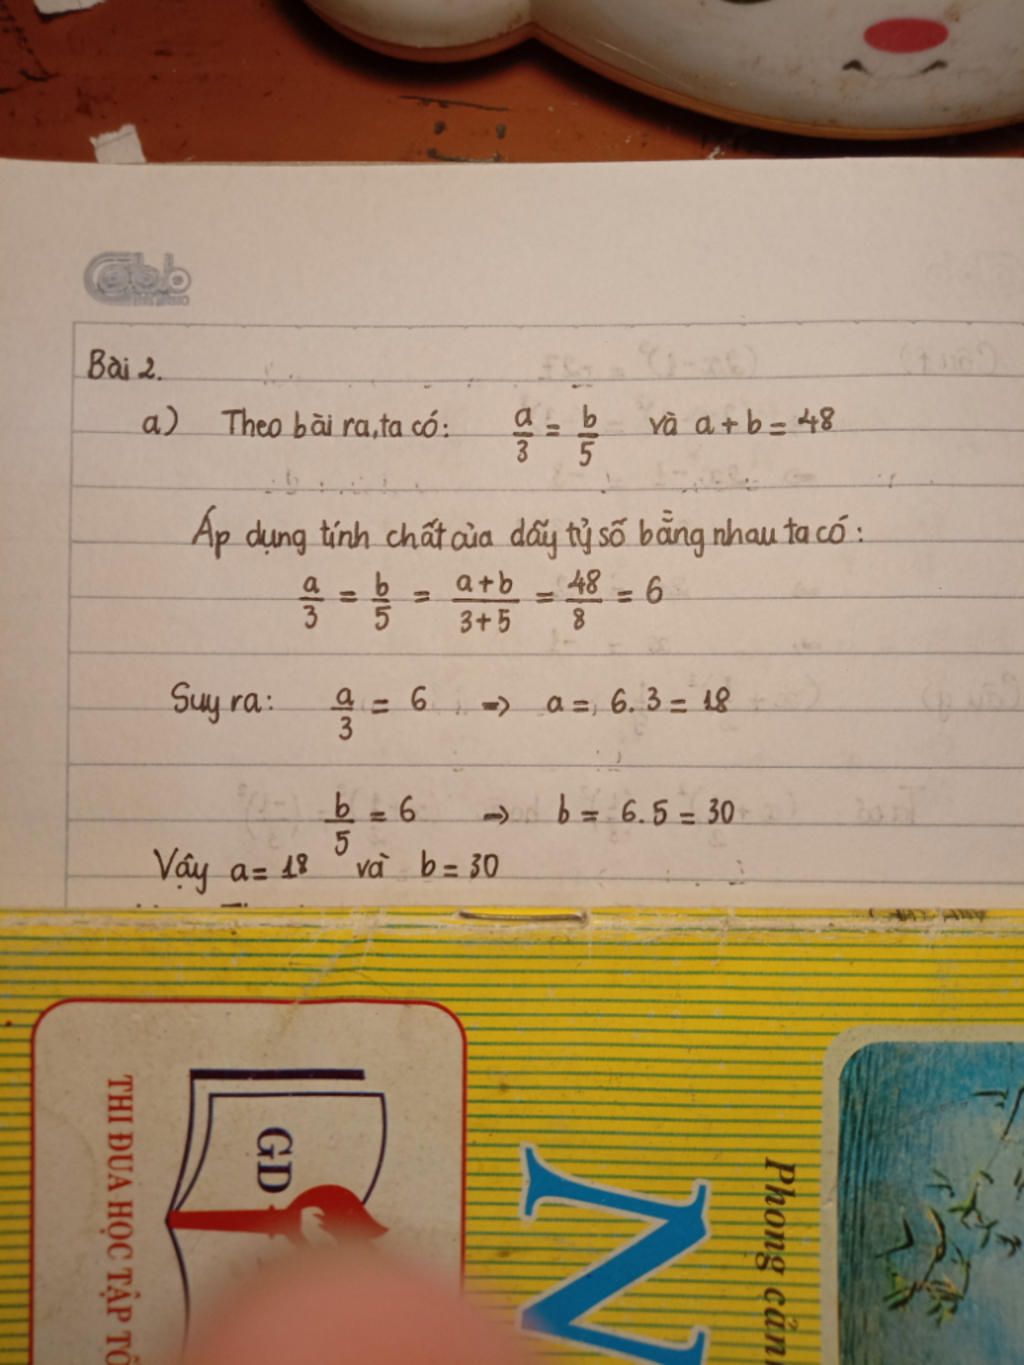 Club
Bài 2.
a) Theo bài ra, ta có: a/3 = b/5 và a + b = 48
Áp dụng tính chất của dãy tỷ số bằng nhau ta có:
a/3 = b/5 = a+b/3+5 = 48/8 = 6
Suy ra: a/3 = 6 => a = 6.3 = 18
b/5 = 6 => b = 6.5 = 30
Vậy a = 18 và b = 30
GD
THI ĐUA HỌC TẬP TỐ
N
Phong cản